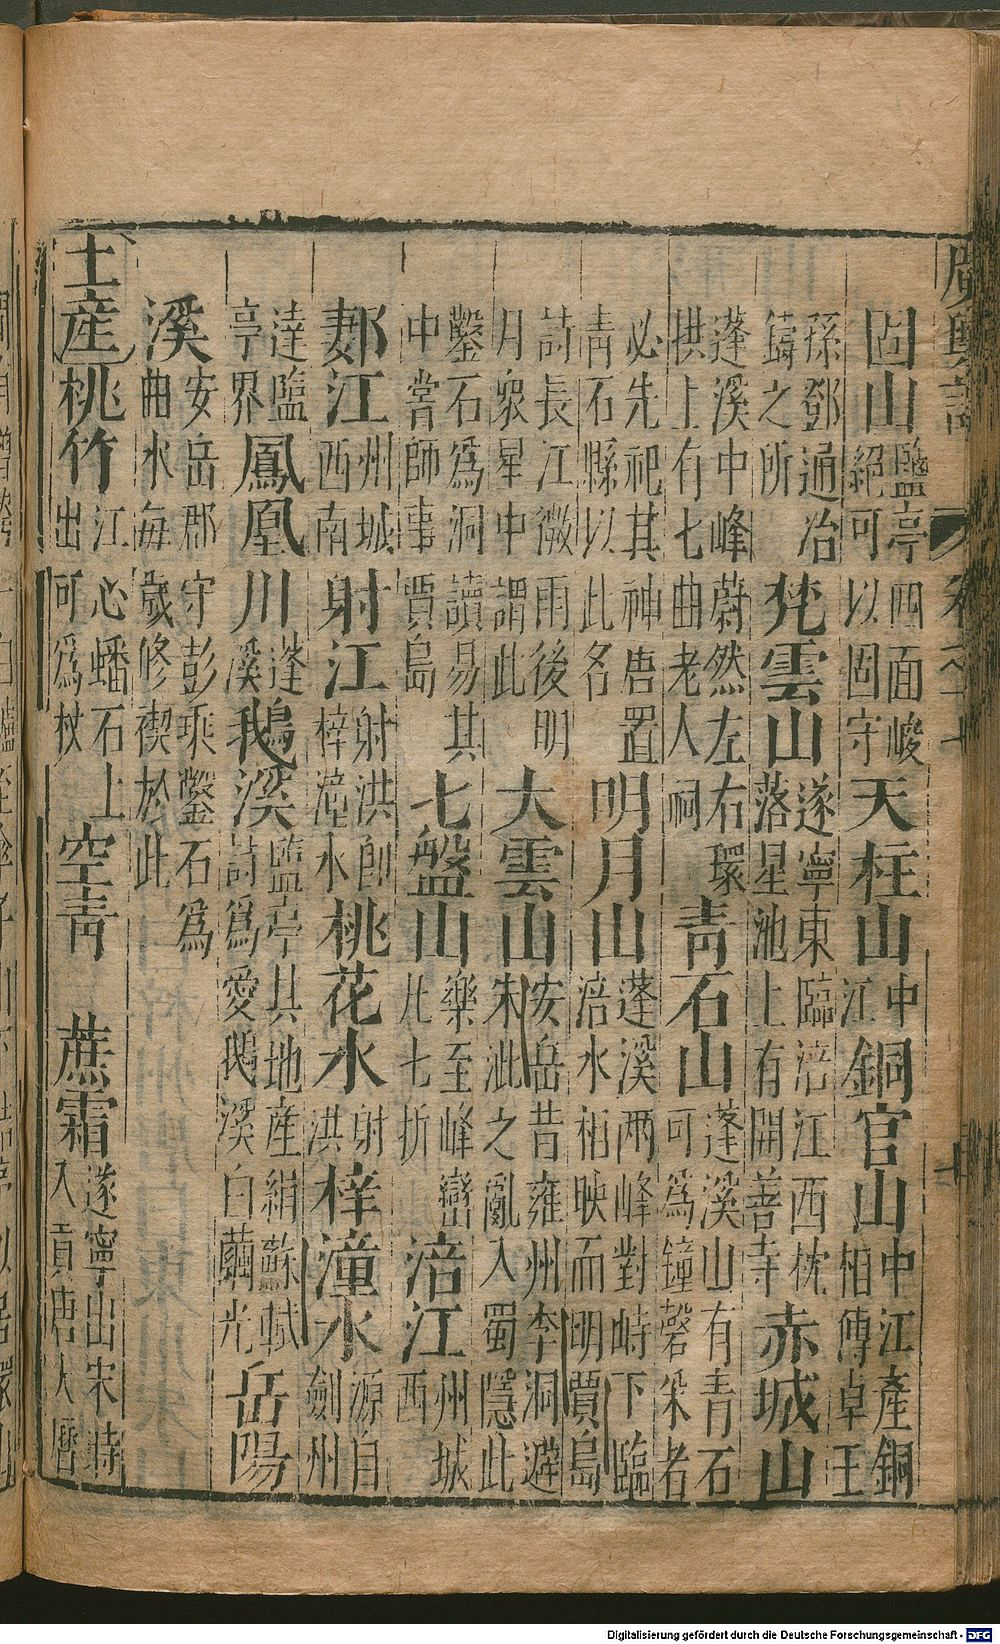 廣輿記 卷之十七
固山 鹽亭四面峻絕可以固守 天柱山 中江 銅官山 中江產銅相傳卓王
孫鄧通冶鑄之所 梵雲山 遂寧東臨涪江西枕落星池上有開善寺 赤城山
蓬溪中峰蔚然左右環拱上有七曲老人祠 青石山 蓬溪山有青石可為鐘磬采者
必先祀其神唐置青石縣以此名 明月山 蓬溪兩峰對峙下臨涪水相映而明賈島
詩長江微雨後明月眾星中謂此 大雲山 安岳昔雍州李洞避朱泚之亂入蜀隱此
鑿石為洞讀易其中嘗師事賈島 七盤山 樂至峰巒凡七折 涪江 州城西
郪江 州城西南 射江 射洪即梓潼水 桃花水 射洪 梓潼水 源自劍州
達鹽亭界 鳳凰川 蓬溪 鵝溪 鹽亭其地產絹蘇軾詩為愛鵝溪白繭光 岳陽
溪 安岳郡守彭乘鑿石為曲水每歲修禊於此
土產 桃竹 江心蟠石上出可為杖 空青 蔗霜 遂寧出宋時入貢唐大曆
Digitalisierung gefördert durch die Deutsche Forschungsgemeinschaft - DFG